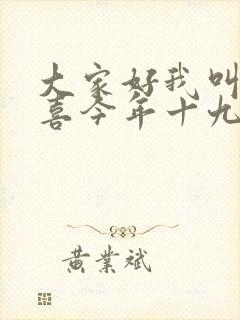 大家好我叫
喜今年十九
黄業斌